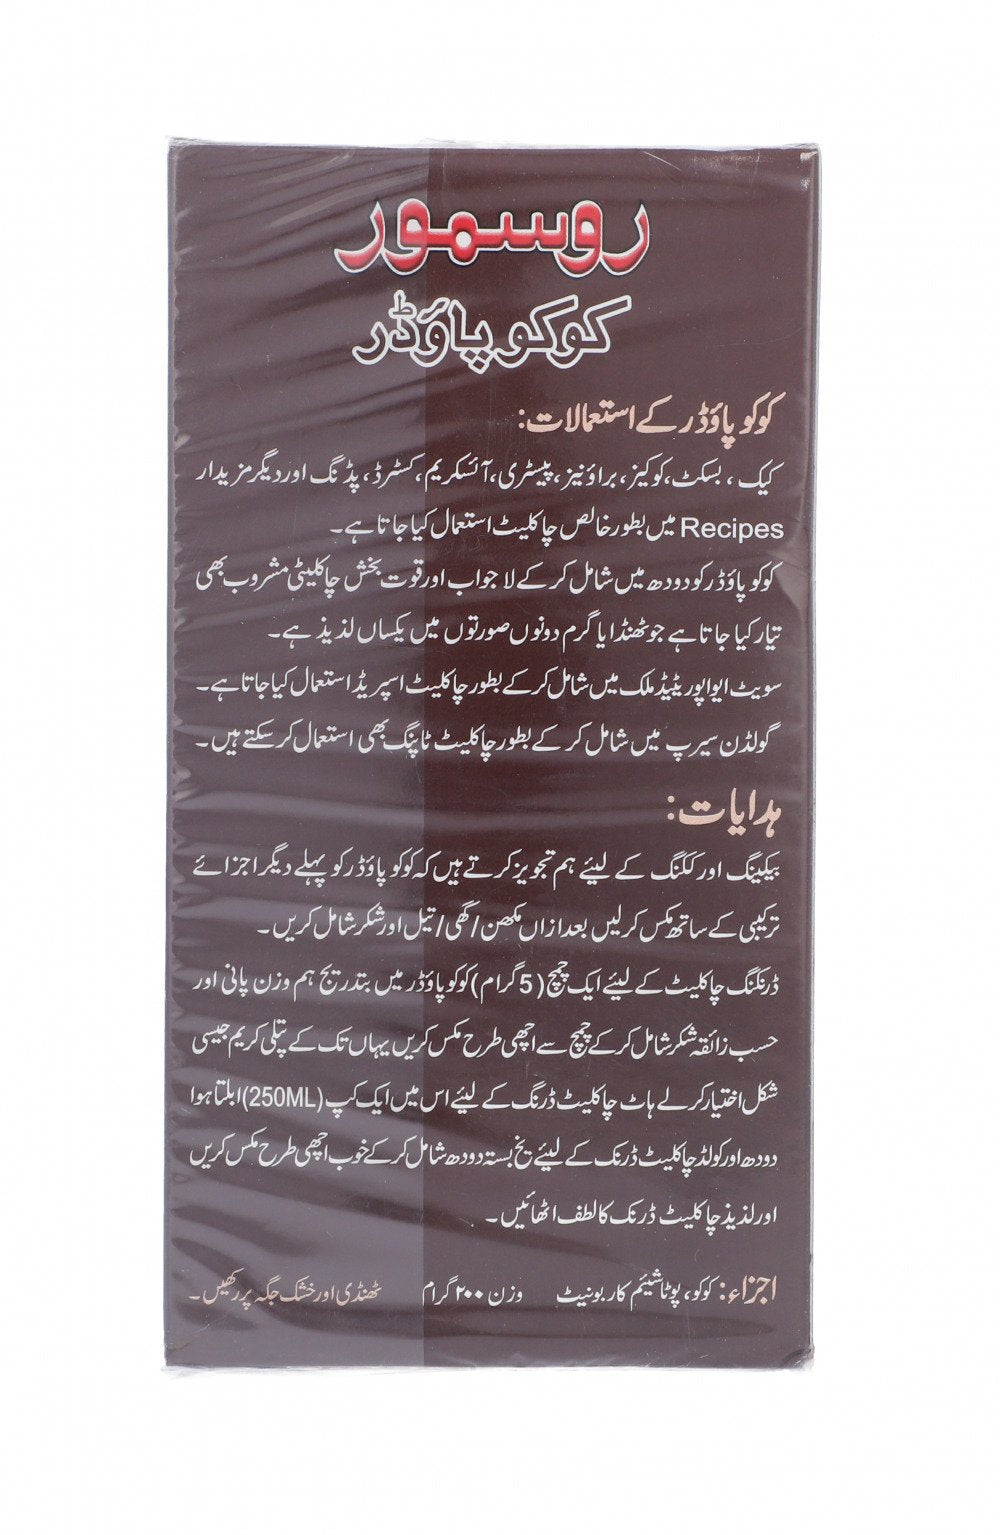 روسمور
کوکو پاؤڈر
کوکو پاؤڈر کے استعمالات:
کیک، بسکٹ، کوکیز، براؤنیز، پیسٹری، آئسکریم، کسٹرڈ، پڈنگ اور دیگر مزیدار
Recipes میں بطور خالص چاکلیٹ استعمال کیا جاتا ہے۔
کوکو پاؤڈر کو دودھ میں شامل کر کے لا جواب اور قوت بخش چاکلیٹی مشروب بھی
تیار کیا جاتا ہے جو ٹھنڈا یا گرم دونوں صورتوں میں یکساں لذیذ ہے۔
سویٹ ایواپوریٹیڈ ملک میں شامل کر کے بطور چاکلیٹ اسپریڈ استعمال کیا جاتا ہے۔
گولڈن سیرپ میں شامل کر کے بطور چاکلیٹ ٹاپنگ بھی استعمال کر سکتے ہیں۔
ہدایات:
بیکینگ اور ککنگ کے لیئے ہم تجویز کرتے ہیں کہ کوکو پاؤڈر کو پہلے دیگر اجزائے
ترکیبی کے ساتھ مکس کر لیں بعد ازاں مکھن/گھی/تیل اور شکر شامل کریں۔
ڈرنکنگ چاکلیٹ کے لیئے ایک چمچ (5 گرام) کوکو پاؤڈر میں بتدریج ہم وزن پانی اور
حسب زائقہ شکر شامل کر کے چمچ سے اچھی طرح مکس کریں یہاں تک کے پتلی کریم جیسی
شکل اختیار کر لے ہاٹ چاکلیٹ ڈرنگ کے لیئے اس میں ایک کپ (250ML) ابلتا ہوا
دودھ اور کولڈ چاکلیٹ ڈرنک کے لیئے یخ بستہ دودھ شامل کر کے خوب اچھی طرح مکس کریں
اور لذیذ چاکلیٹ ڈرنک کا لطف اٹھائیں۔
اجزاء: کوکو، پوٹاشیئم کاربونیٹ وزن ۲۰۰ گرام ٹھنڈی اور خشک جگہ پر رکھیں۔